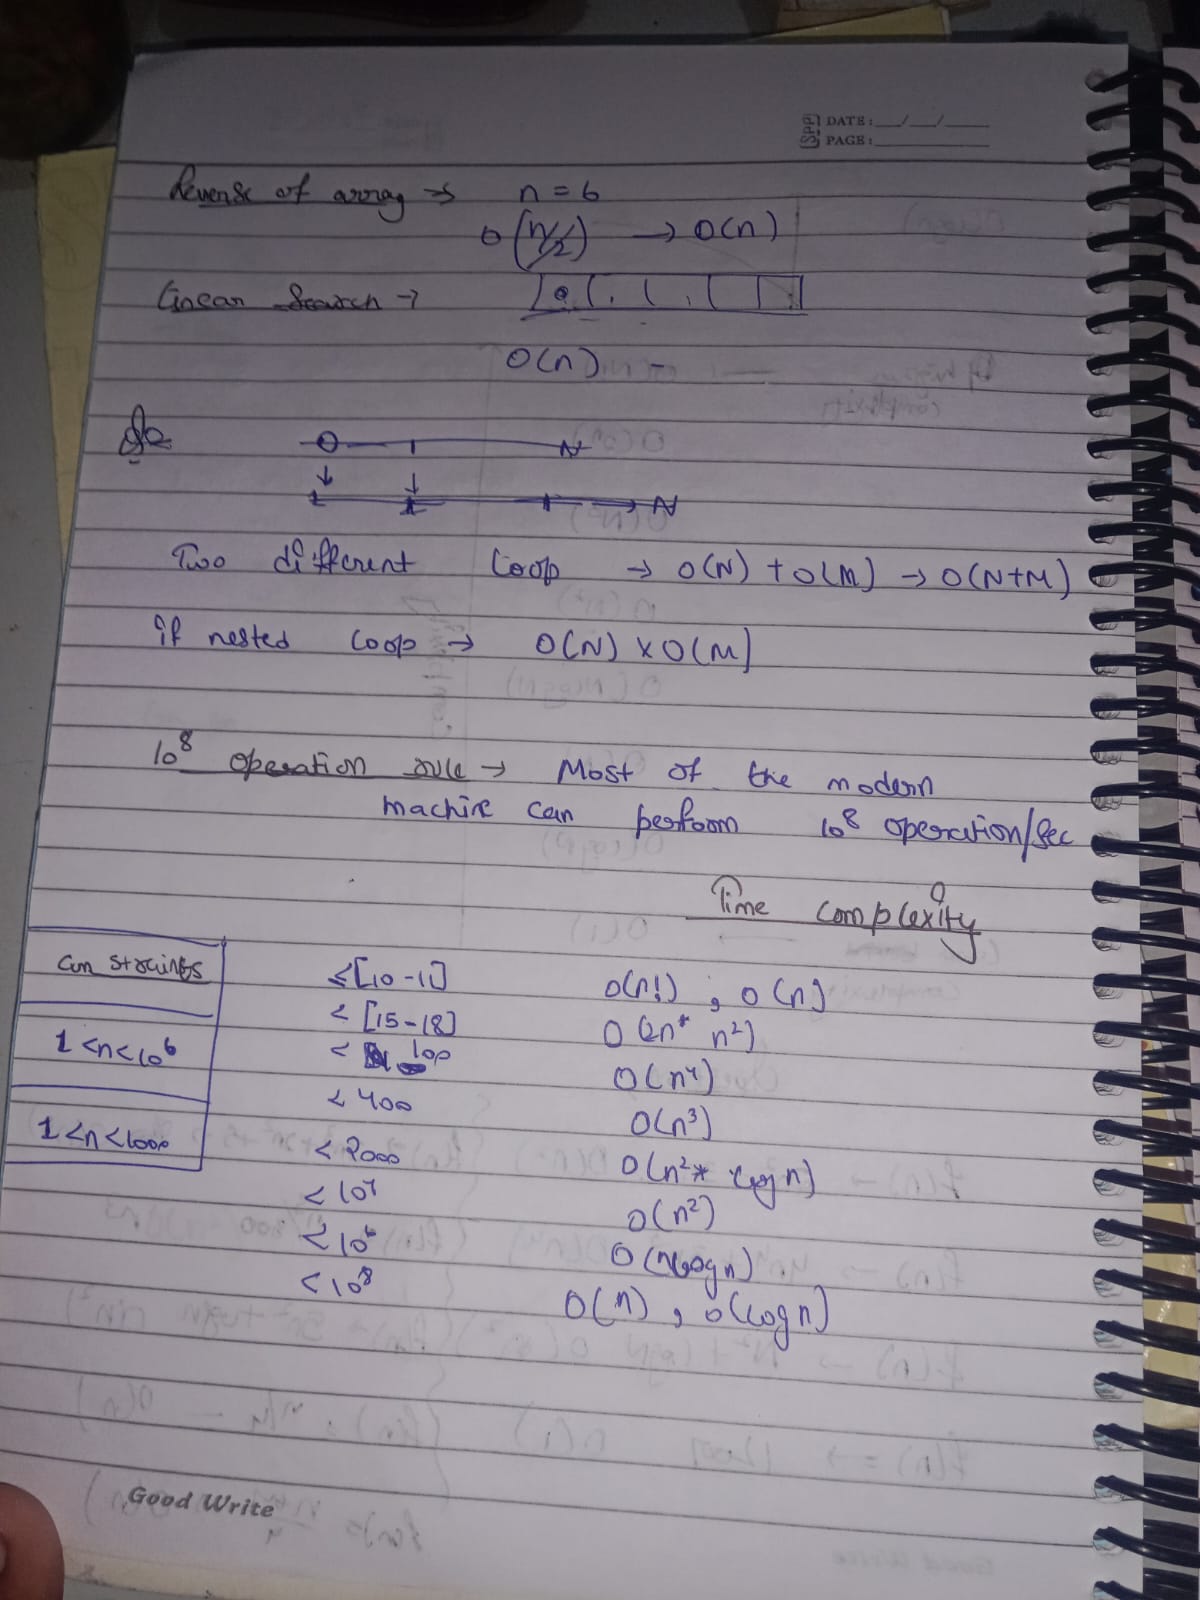 SPP DATE: __/__/____
PAGE: ________
Reverse of array → n = 6
O(n/2) → O(n)
Linear Search →
O(n)
O N
N
Two different loop → O(N) + O(M) → O(N+M)
if nested loop → O(N) × O(M)
10⁸ operation rule → Most of the modern
machine can perform 10⁸ operation/sec
Time complexity
≤ [10-11] O(n!) , O(n)
< [15-18] O(2n* n²)
1 < n < 10⁶ < 100 O(n⁴)
< 400 O(n³)
1 < n < 1000 < 2000 O(n² * log n)
< 10⁴ O(n²)
< 10⁶ O(n log n)
< 10⁸ O(n) , O(log n)
Good Write